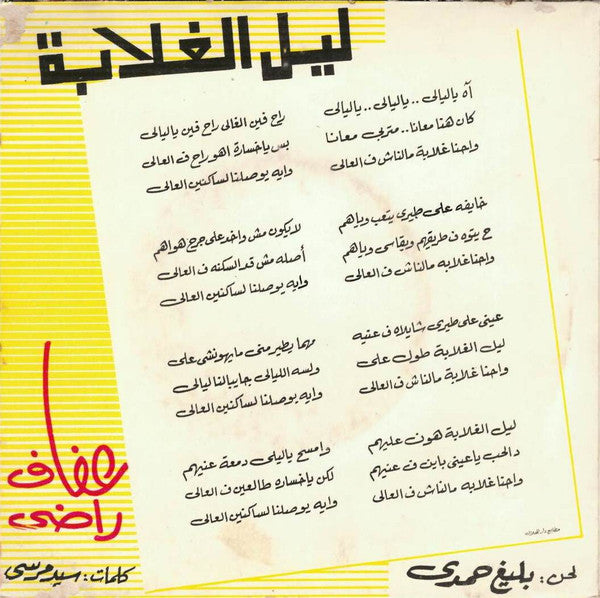 ليل الغلابة
آه ياليالى .. ياليالى .. ياليالى
كان هنا معانا .. متربى معانا
واحنا غلابة مالناش ف العالى
راح فين الغالى راح فين ياليالى
بس ياخسارة اهو راح ف العالى
وايه يوصلنا لساكنين العالى
خايفه على طيرى يتعب وياهم
ح يتوه ف طريقهم ويقاسى وياهم
واحنا غلابه مالناش ف العالى
لايكون مش واخد على جرح هواهم
أصله مش قد السكنه ف العالى
وايه يوصلنا لساكنين العالى
عينى على طيرى شايلاه ف عنيه
ليل الغلابة طول على
واحنا غلابة مالناش ف العالى
مهما يطير منى مايهونشى على
ولسه الليالى جايبالنا ليالى
وايه يوصلنا لساكنين العالى
ليل الغلابة هون عليهم
دالحب ياعينى باين ف عنيهم
واحنا غلابة مالناش ف العالى
وامسح ياليلى دمعة عنيهم
لكن ياخساره طالعين ف العالى
وايه يوصلنا لساكنين العالى
عفاف
راضى
كلمات : سيد مرسى
لحن : بليغ حمدى